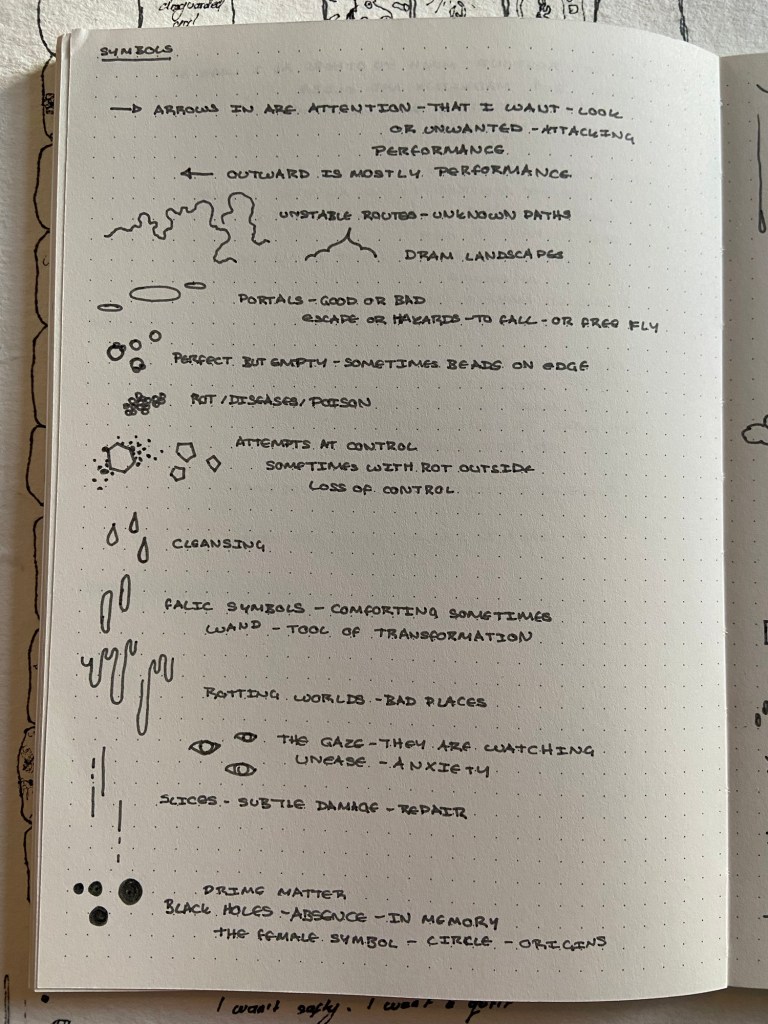 cloquarded
SYMBOLS
ARROWS IN ARE ATTENTION - THAT I WANT - LOOK
OR UNWANTED - ATTACKING
PERFORMANCE
OUTWARD IS MOSTLY PERFORMANCE
UNSTABLE ROUTES - UNKNOWN PATHS
DRAM LANDSCAPES
PORTALS - GOOD OR BAD
ESCAPE OR HAZARDS - TO FALL - OR FREE FLY
PERFECT BUT EMPTY - SOMETIMES BEADS ON EDGE
ROT / DISEASES / POISON
ATTEMPTS AT CONTROL
SOMETIMES WITH ROT OUTSIDE
LOSS OF CONTROL
CLEANSING
FALIC SYMBOLS - COMFORTING SOMETIMES
WAND - TOOL OF TRANSFORMATION
ROTTING WORLDS - BAD PLACES
THE GAZE - THEY ARE WATCHING
UNEASE - ANXIETY
SLICES - SUBTLE DAMAGE - REPAIR
PRIME MATTER
BLACK HOLES - ABSENCE - IN MEMORY
THE FEMALE SYMBOL - CIRCLE - ORIGINS
I want safty. I want a